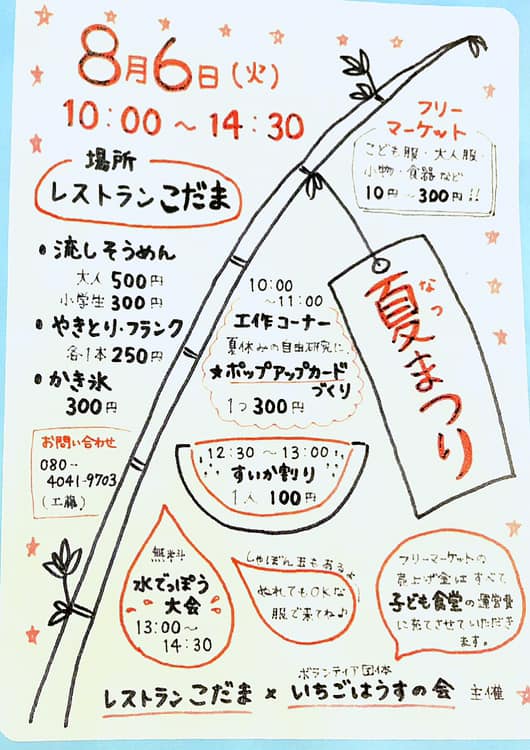 8月6日(火)
10:00〜14:30
場所
レストランこだま
フリー
マーケット
こども服・大人服・
小物・食器など
10円〜300円!!
なつ
夏まつり
• 流しそうめん
大人 500円
小学生 300円
• やきとり・フランク
各1本 250円
• かき氷
300円
10:00
〜11:00
工作コーナー
夏休みの自由研究に、
★ポップアップカード
づくり
1つ 300円
お問い合わせ
080-
4041-9703
(工藤)
12:30〜13:00
すいか割り
1人 100円
無料
水でっぽう
大会
13:00〜
14:30
しゃぼん玉もあるよ
ぬれてもOKな
服で来てね♪
フリーマーケットの
売上げ金はすべて
子ども食堂の運営費
に充てさせていただき
ます。
ボランティア団体
レストランこだま × いちごはうすの会 主催